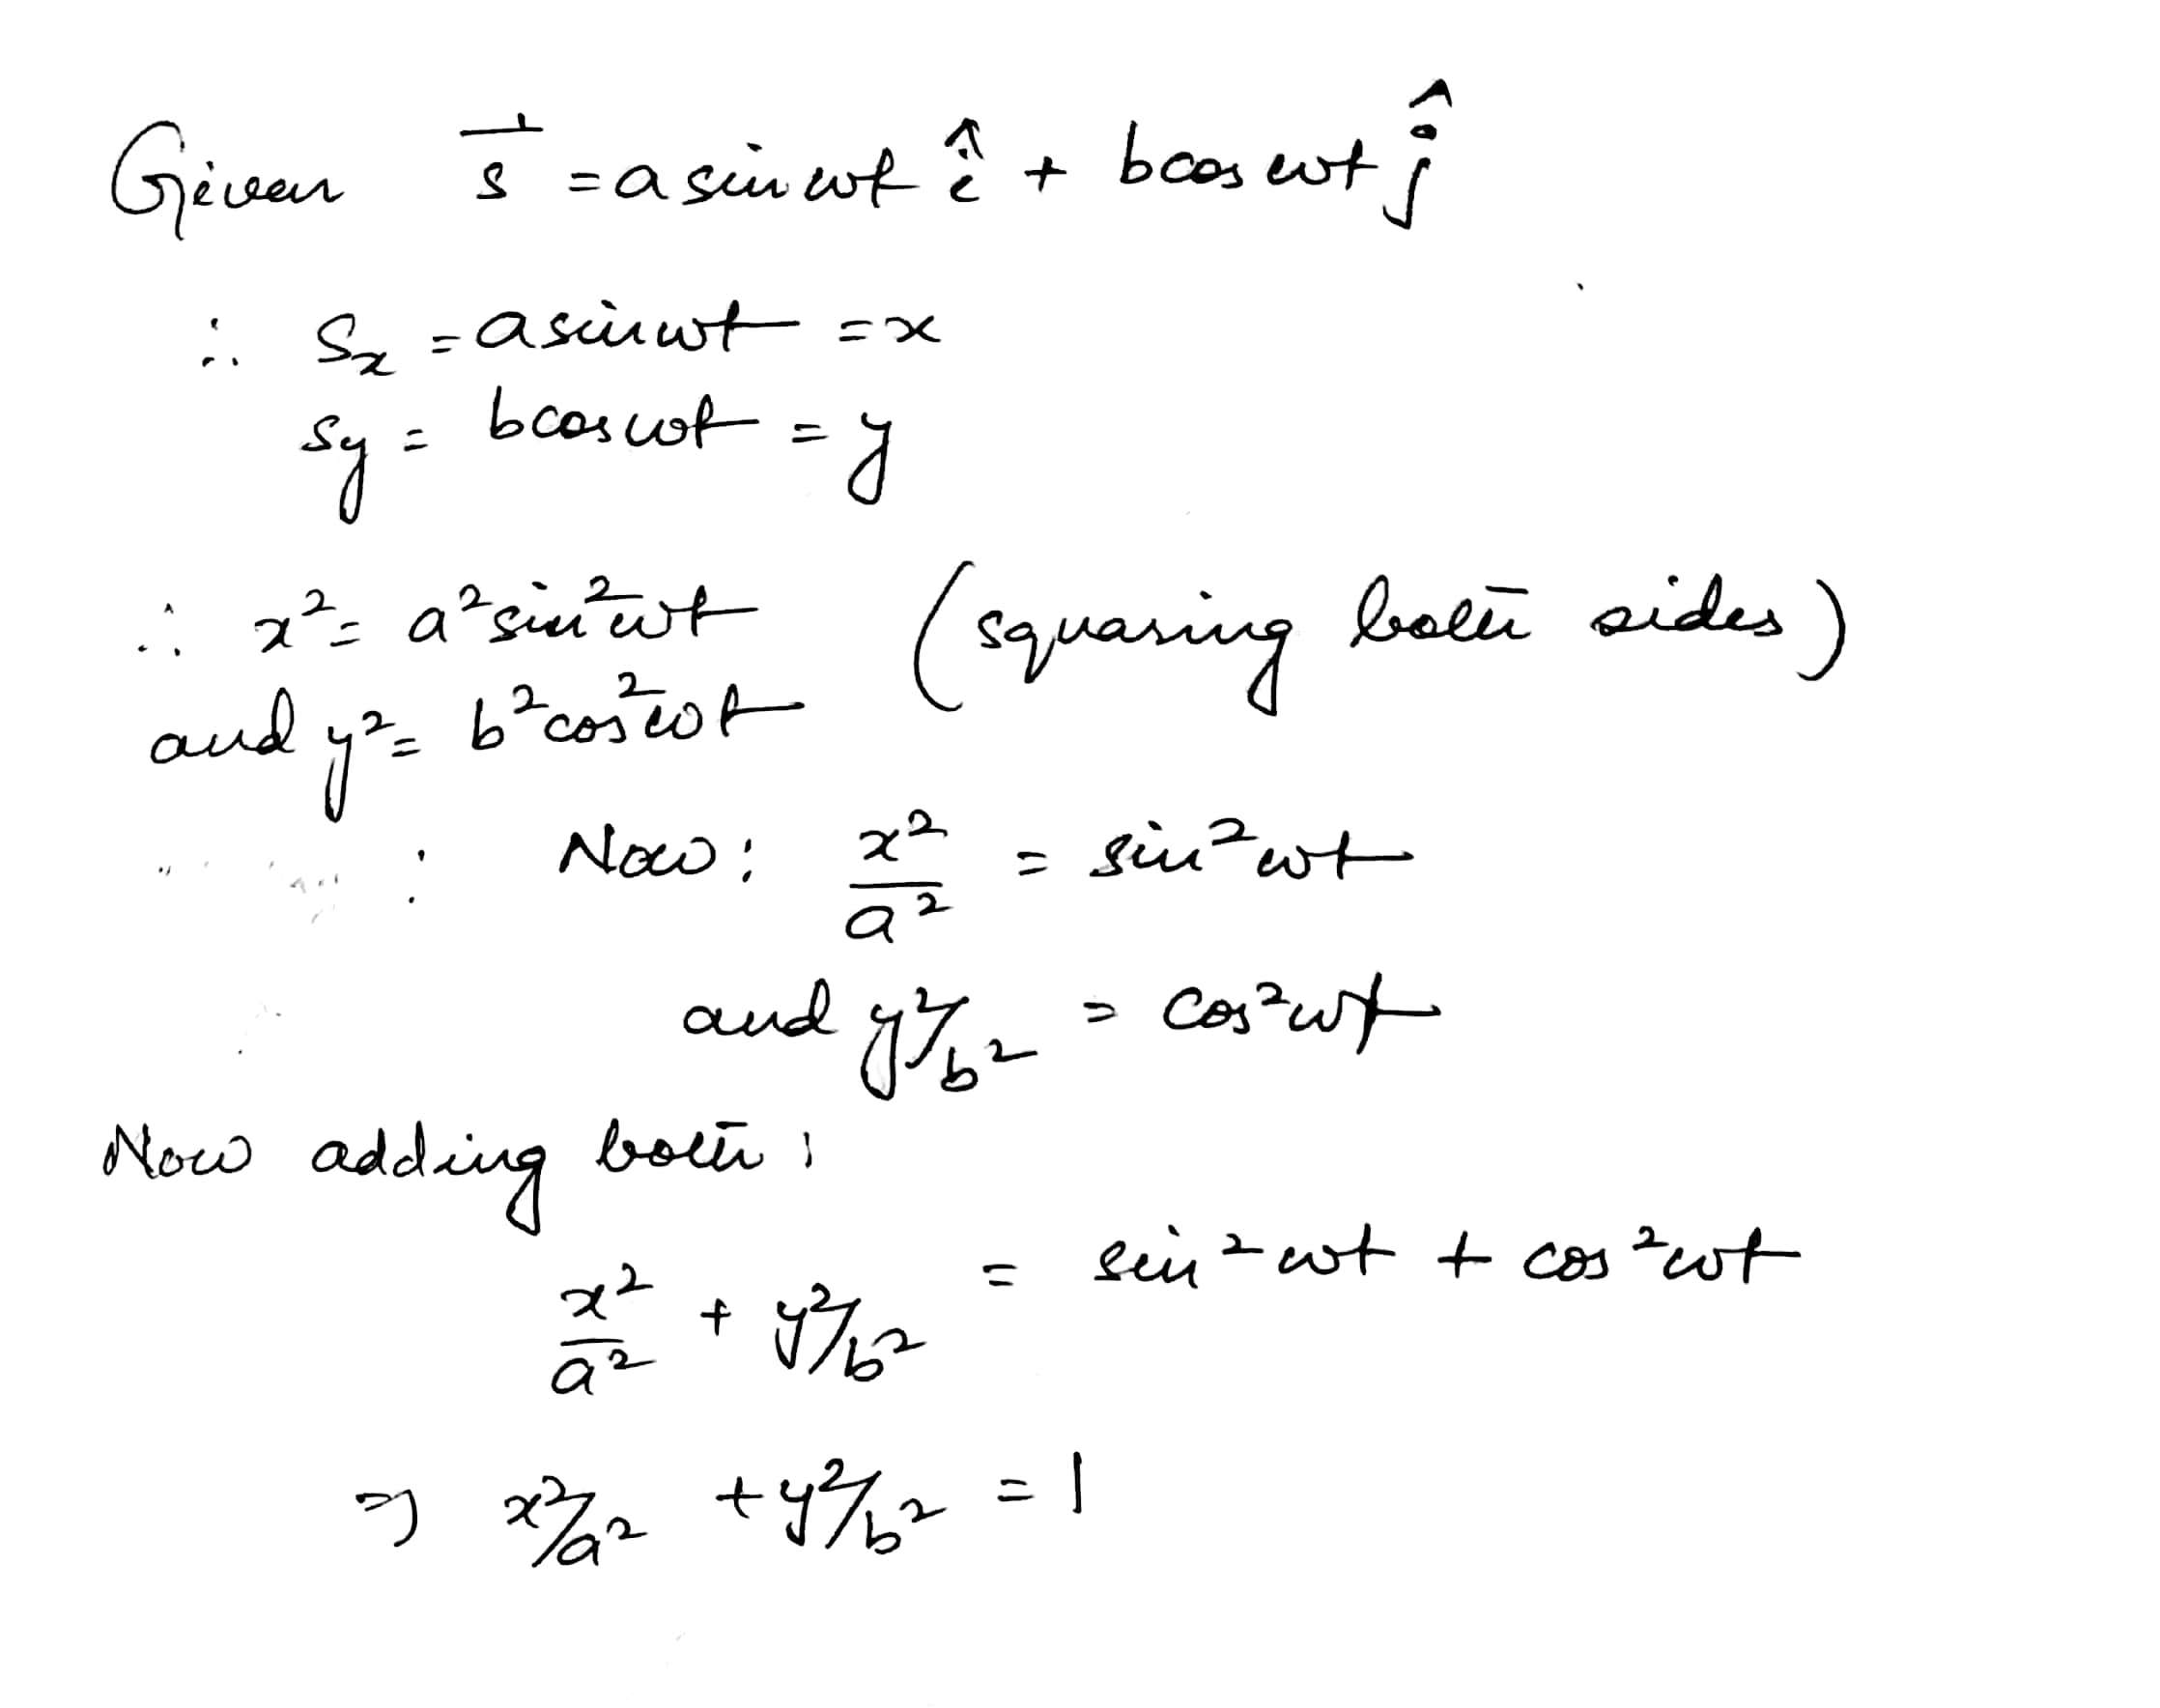 Given s⃗ = a sin ωt î + b cos ωt ĵ
∴ Sx = a sin ωt = x
sy = b cos ωt = y
∴ x² = a² sin² ωt (squaring both sides)
and y² = b² cos² ωt
: Now: x²/a² = sin² ωt
and y²/b² = cos² ωt
Now adding both:
x²/a² + y²/b² = sin² ωt + cos² ωt
⇒ x²/a² + y²/b² = 1